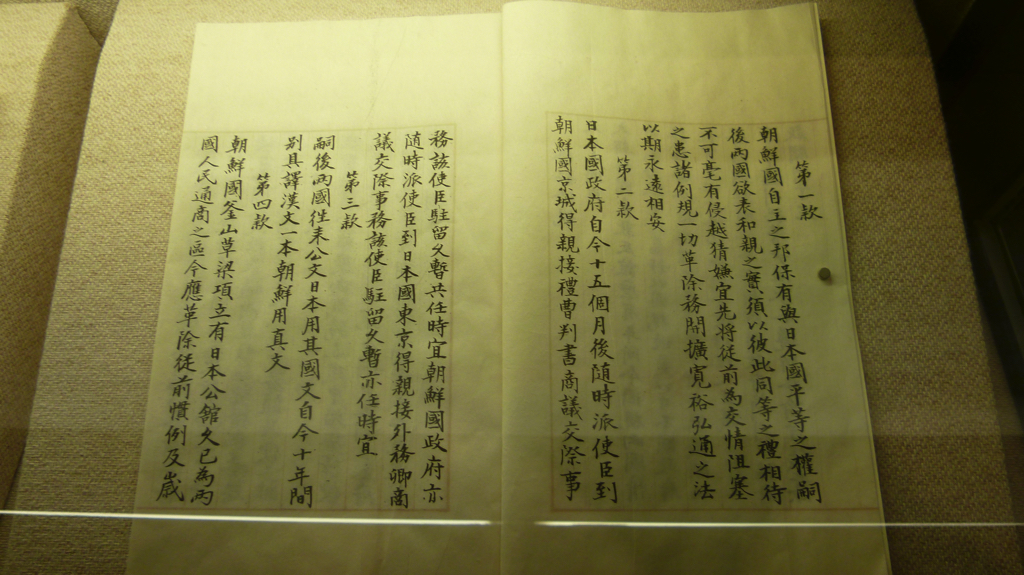 第一款
朝鮮國自主之邦保有與日本國平等之權嗣
後兩國欲表和親之實須以彼此同等之禮相待
不可毫有侵越猜嫌宜先將從前為交情阻塞
之患諸例規一切革除務開擴寬裕弘通之法
以期永遠相安
第二款
日本國政府自今十五個月後隨時派使臣到
朝鮮國京城得親接禮曹判書商議交際事
務該使臣駐留久暫共任時宜朝鮮國政府亦
隨時派使臣到日本國東京得親接外務卿商
議交際事務該使臣駐留久暫亦任時宜
第三款
嗣後兩國往来公文日本用其國文自今十年間
別具譯漢文一本朝鮮用真文
第四款
朝鮮國釜山草梁項立有日本公館久已為兩
國人民通商之區今應革除從前慣例及歲